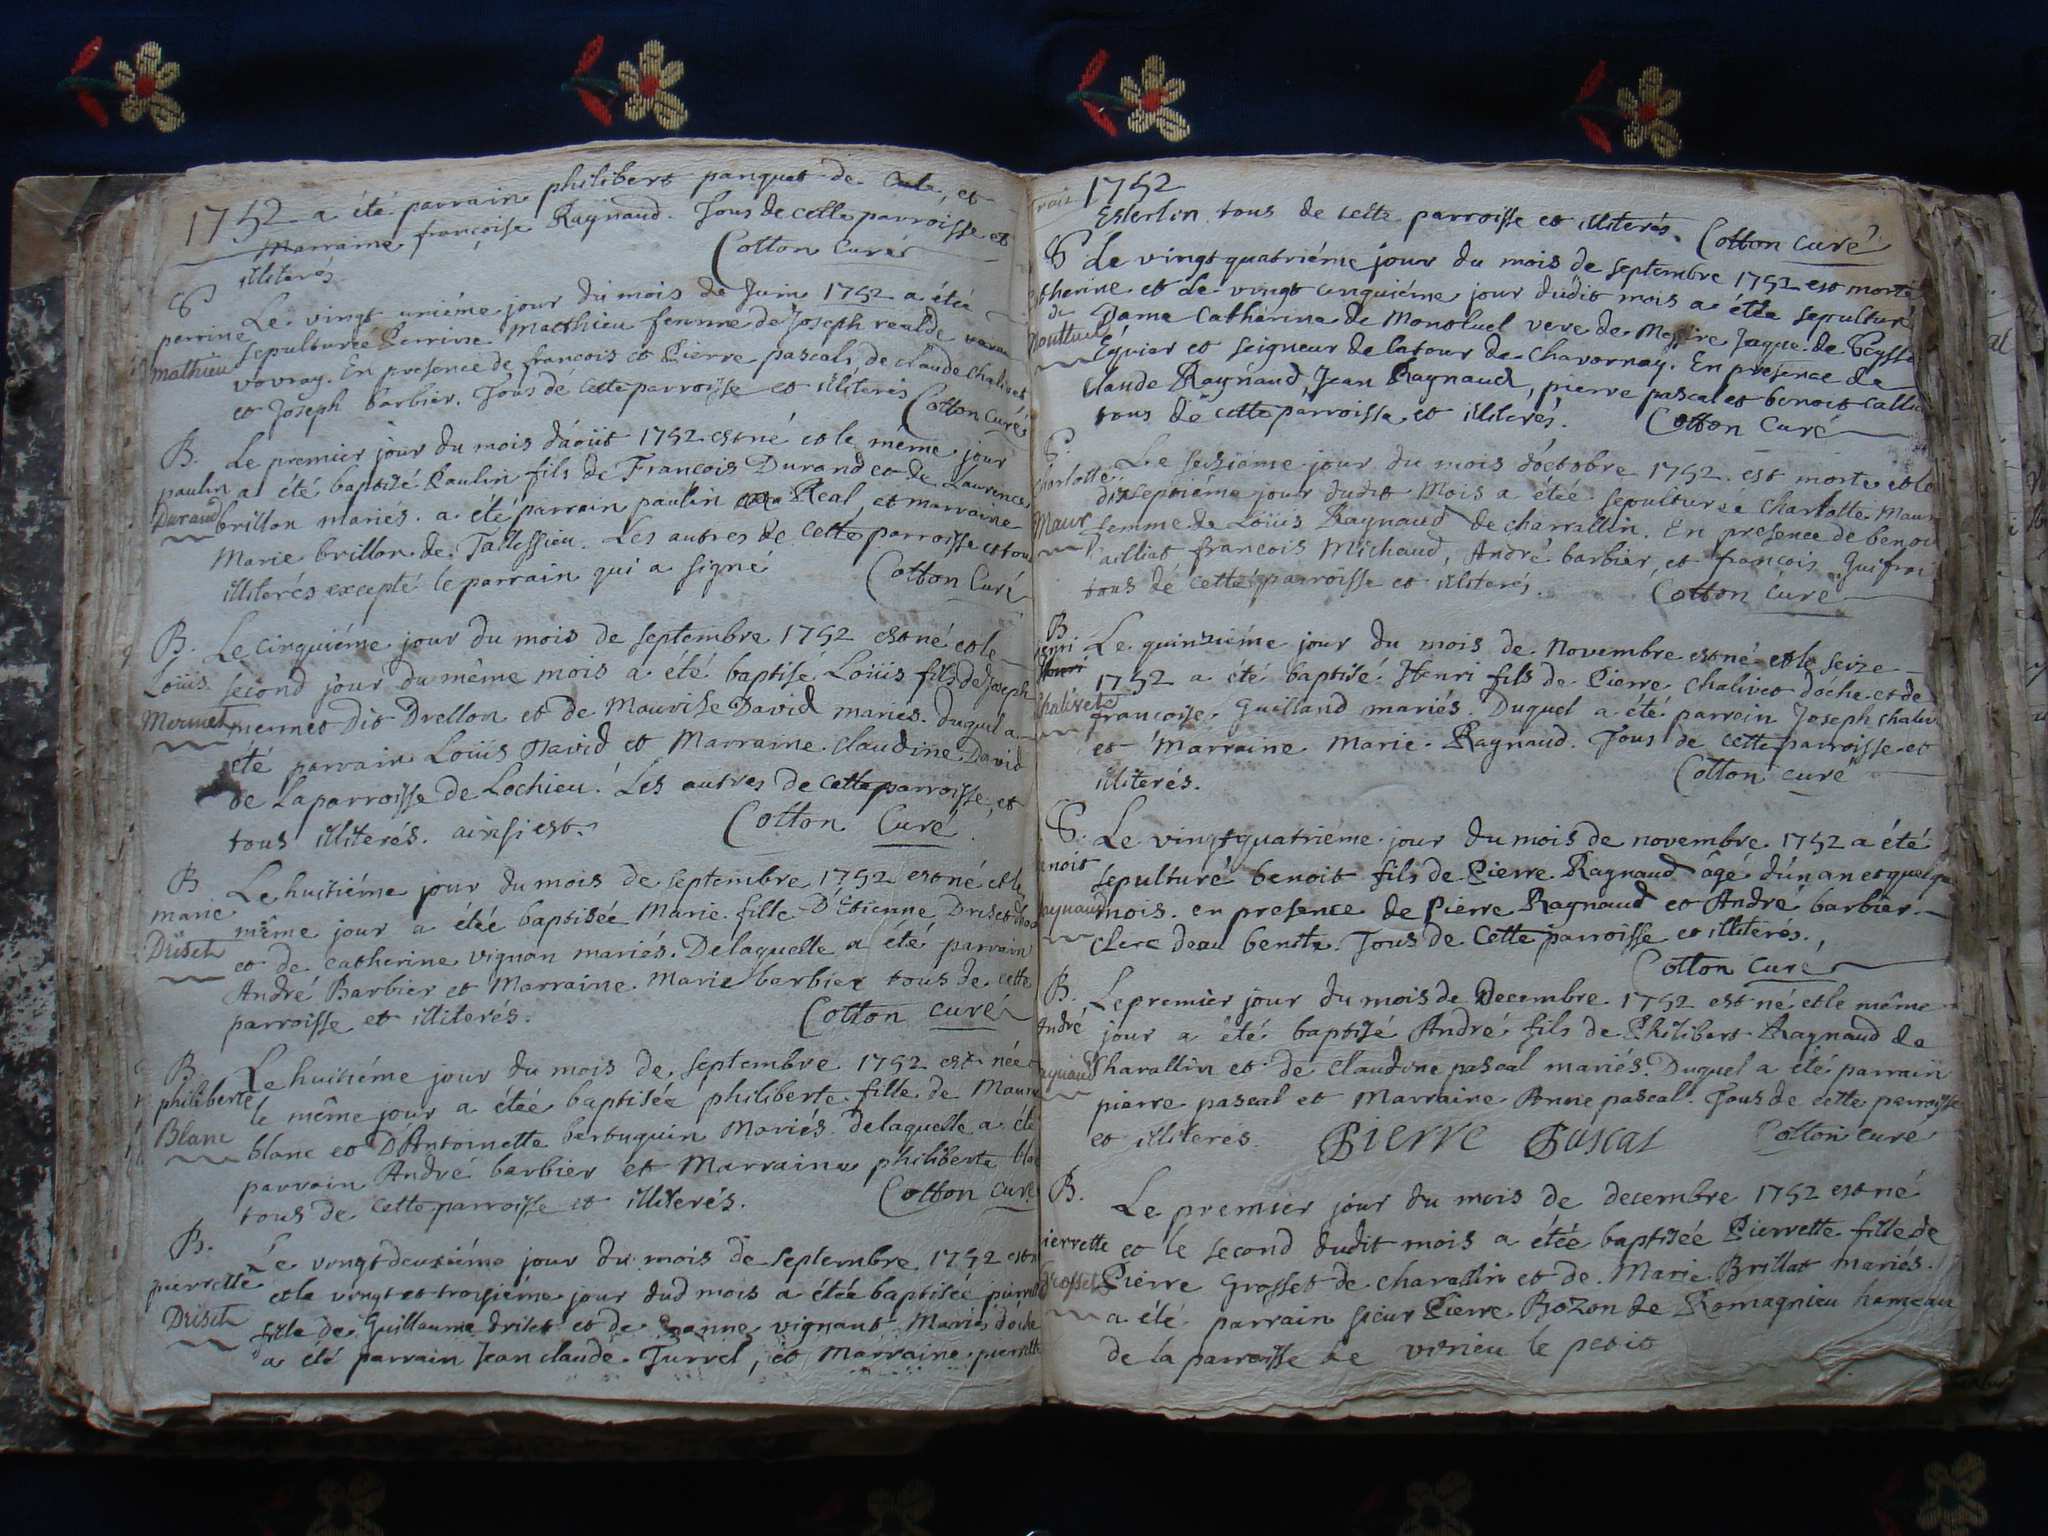 1752 a été parrain philibert panquet de et
Marraine françoise Raÿnaud. Tous de cette parroisse et
illiterés Cotton Curé
S
perrine
mathieu
Le vingt uniéme jour du mois de Juin 1752 a étée
sepulturée Perrine Matthieu femme de Joseph real de
vovray. En presence de françois et Pierre pascal, de claude Chalivet
et Joseph barbier. Tous de cette parroisse et illiterés Cotton Curé
B.
paulin
Durand
Le premier jour du mois d'aoüt 1752 est né et le même jour
a été baptisé Paulin fils de François Durand et de Laurence
brillon mariés. a été parrain paulin Real, et marraine
Marie brillon de Talissieu. Les autres de cette parroisse et tous
illiterés excepté le parrain qui a signé Cotton Curé
B.
Loüis
Mermet
Le cinquiéme jour du mois de septembre 1752 est né et le
second jour du même mois a été baptisé Loüis fils de Joseph
mermet Dit Drellon et de Maurise David mariés. duquel a
été parrain Loüis David et Marraine Claudine David
de la parroisse de Lochieu. Les autres de cette parroisse, et
tous illiterés. ainsi est. Cotton Curé
B
marie
Driset
Le huitiéme jour du mois de septembre 1752 est né et le
même jour a étéé baptisée Marie fille D'Etienne Driset
et de catherine vignon mariés. De laquelle a été parrain
André Barbier et Marraine Marie barbier tous de cette
parroisse et illiterés. Cotton curé
B
philiberte
Blanc
Le huitiéme jour du mois de septembre 1752 est née
le même jour a étée baptisée philiberte fille de
blanc et D'Antoinette bertuquin Mariés de laquelle a été
parrain André barbier et Marraine philiberte
tous de cette parroisse et illiterés. Cotton curé
B.
pierrette
Driset
Le vingtdeuxiéme jour du mois de septembre 1752 est
et le vingt et troisiéme jour dud mois a étée baptisée
fille de Guillaume driset et de vignant Mariés d'oche
a été parrain Jean claude Turrel, et Marraine pierrette
1752
Esterlin tous de cette parroisse et illiterés. Cotton curé
S
therine
de
montluel
Le vingtquatriéme jour du mois de septembre 1752 est morte
et le vingt cinquiéme jour dudit mois a étée sepulturé
Dame Catherine de Montluel veve de Messire Jaque de
Equier et seigneur de latour de chavornay. En presence de
claude Raynaud, Jean Raynaud, pierre pascal et benoit
tous de cette parroisse et illiterés. Cotton Curé
S.
Charlotte
Maur
Le seiziéme jour du mois d'octobre 1752 est morte et le
dixseptiéme jour dudit Mois a étée sepulturée Charlotte Maur
femme de Loüis Raynaud de charrallin. En presence de benoit
françois Michaud, André barbier, et françois
tous de cette parroisse et illiterés. Cotton curé
B
enri
Chalivet
Le quinziéme jour du mois de Novembre est né et le seize
1752 a été baptisé Henri fils de Pierre Chalivet d'oche et de
françoise Guilland mariés. Duquel a été parrein Joseph
et Marraine Marie Raynaud. Tous de cette parroisse et
illiterés. Cotton curé
S.
enoit
aynaud
Le vingtquatriéme jour du mois de novembre 1752 a été
sepulturé benoit fils de Pierre Raynaud âgé d'un an et quelque
mois. en presence de Pierre Raynaud et André barbier
clerc deau benite. Tous de cette parroisse et illiterés.
Cotton curé
B.
André
aynaud
Le premier jour du mois de Decembre 1752 est né et le même
jour a été baptisé André fils de Philibert Raynaud de
Charallin et de claudine pascal mariés. Duquel a été parrain
pierre pascal et Marraine Anne pascal. Tous de cette parroisse
et illiterés. Pierre Pascal Cotton curé
B.
ierrette
Grosset
Le premier jour du mois de decembre 1752 est né
et le second dudit mois a étée baptisée Pierrette fille de
Pierre Grosset de charallin et de Marie Brillat mariés.
a été parrain sieur Pierre Bozon de Romagnieu hameau
de la parroisse de virieu le petit